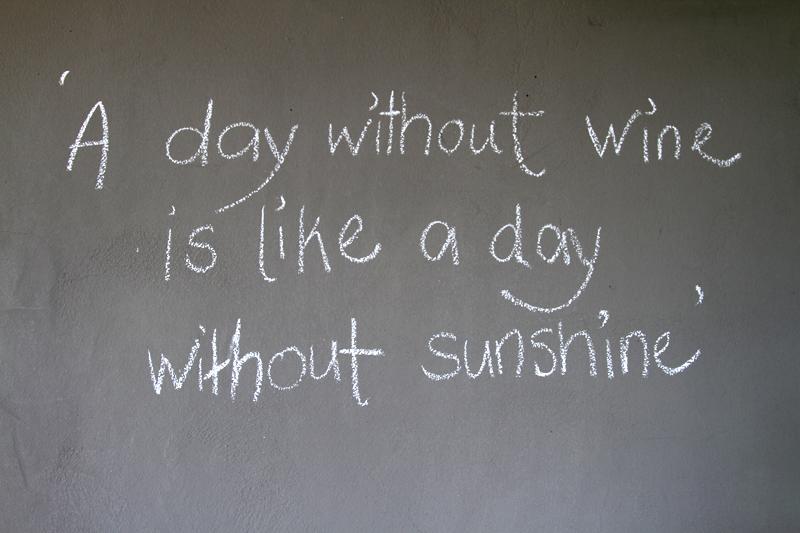 'A day without wine
is like a day
without sunshine'